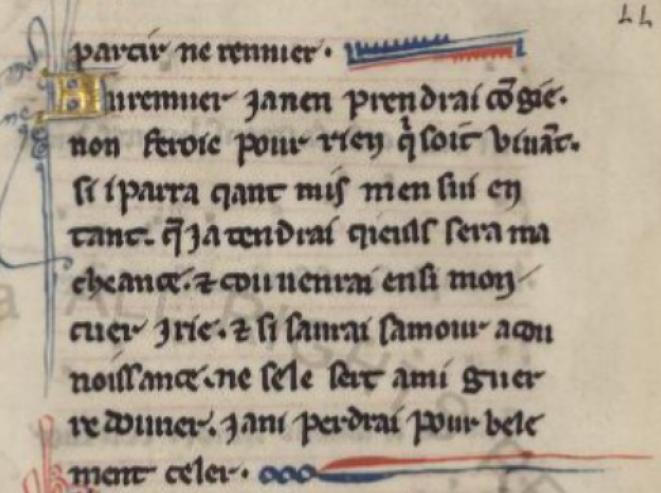 partir ne remuer.
Huremuer janen prendrai cõgie.
non feroie pour rien q̇ soit viuãt.
si i parra qant mis men sui en
tant. q̃ ja tendrai qieuls sera ma
cheance. ⁊ couuenrai ensi mon
cuer irie. ⁊ si saurai samour a cou
noissance. ne sele set ami guer
re douner. jani perdrai pour bele
ment celer.